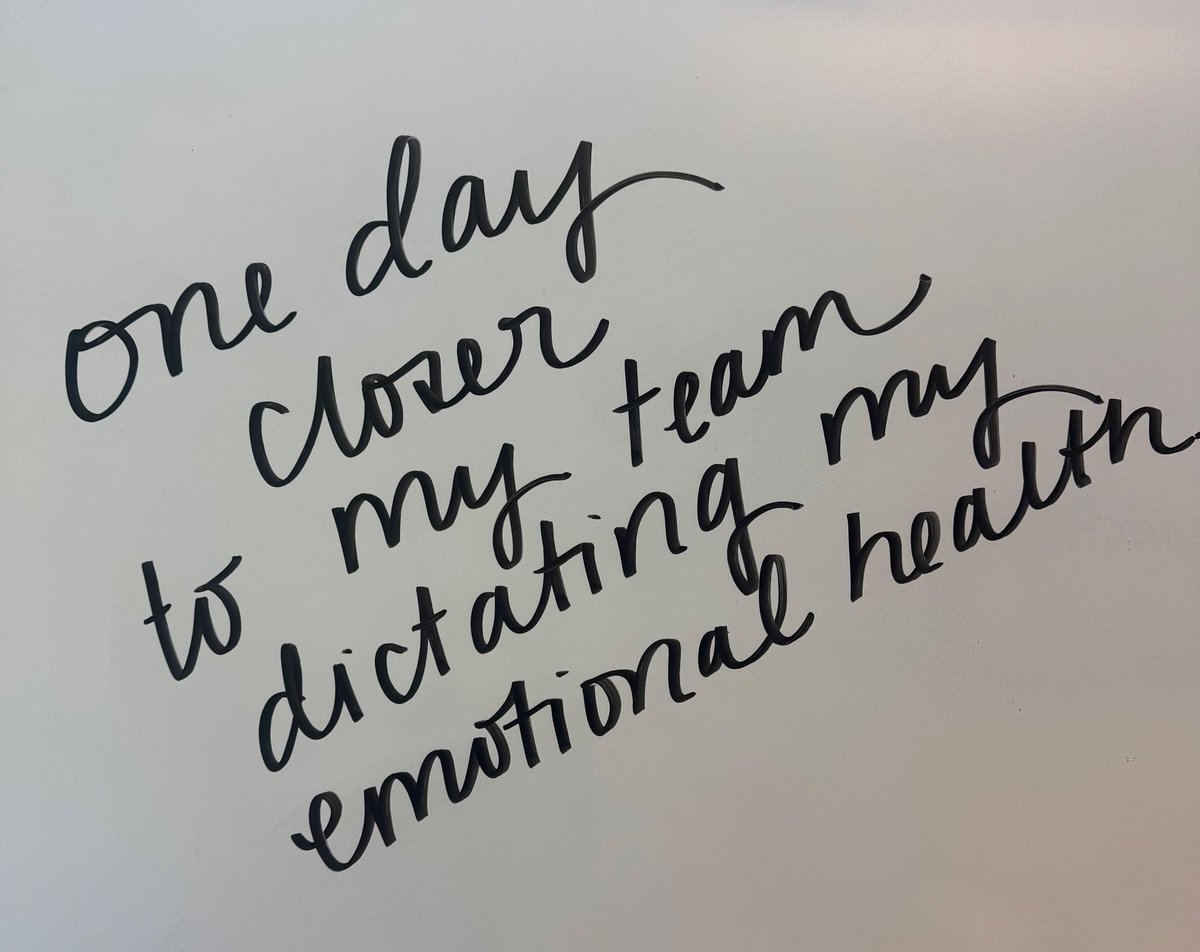 one day
closer
to my team
dictating my
emotional health